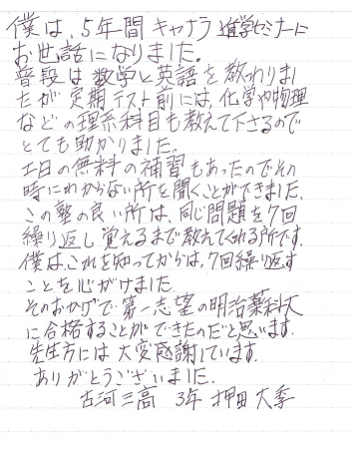 僕は、5年間キャナラ進学セミナーに
お世話になりました。
普段は数学と英語を教わりまし
たが定期テスト前には、化学や物理
などの理系科目も教えて下さるので
とても助かりました。
土日の無料の補習もあったのでその
時にわからない所を聞くことができました。
この塾の良い所は、同じ問題を7回
繰り返し覚えるまで教えてくれる所です。
僕は、これを知ってからは、7回繰り返す
ことを心がけました。
そのおかげで第一志望の明治薬科大
に合格することができたのだと思います。
先生方には大変感謝しています。
ありがとうございました。
古河三高 3年 押田大季